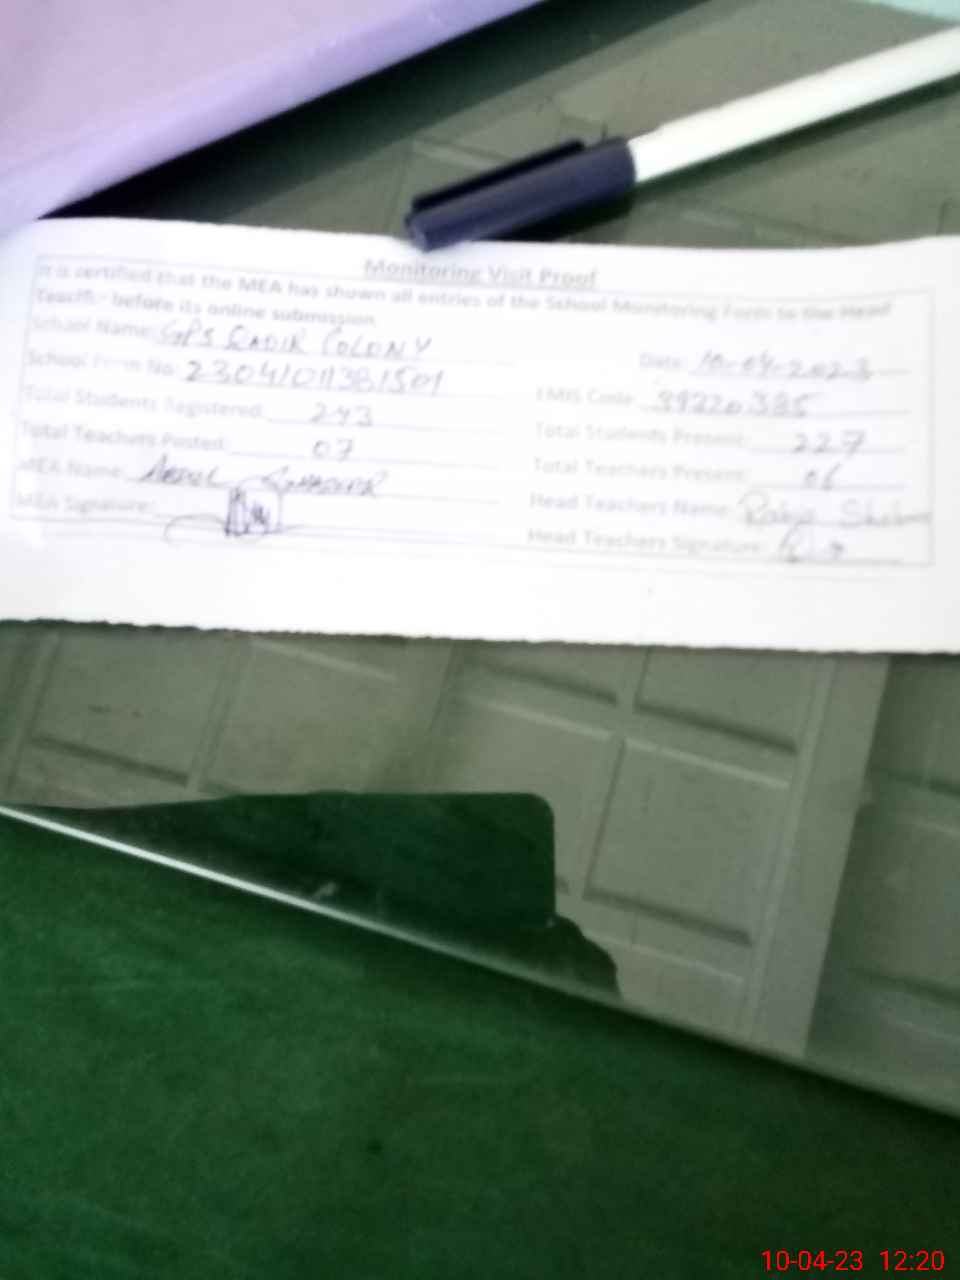 Monitoring Visit Proof
It is certified that the MEA has shown all entries of the School Monitoring Form to the Head
before its online submission.
School Name: GPS QADIR COLONY
Date: 10-04-2023
School Form No: 23041011381501
EMIS Code:
Total Students Registered: 243
Total Students Present: 227
Total Teachers Posted: 07
Total Teachers Present: 06
MEA Name: ABDUL
Head Teachers Name:
MEA Signature:
Head Teachers Signature:
10-04-23 12:20